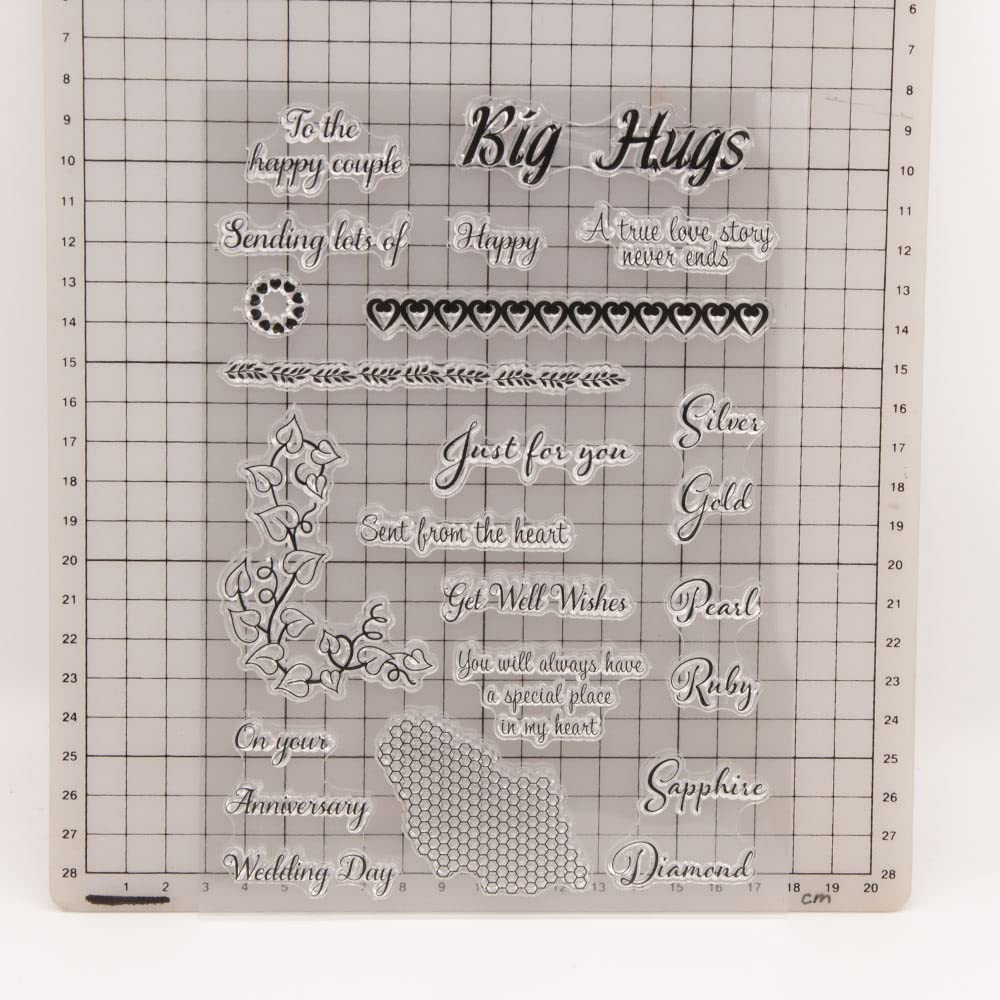 6
7
7
8
8
9
9
10
10
11
11
12
12
13
13
14
14
15
15
16
16
17
17
18
18
19
19
20
20
21
21
22
22
23
23
24
24
25
25
26
26
27
27
28
28
To the
happy couple
Big Hugs
Sending lots of
Happy
A true love story
never ends
Silver
Just for you
Gold
Sent from the heart
Get Well Wishes
Pearl
You will always have
a special place
in my heart
Ruby
On your
Sapphire
Anniversary
Wedding Day
Diamond
1 2 3 4 5 8 9 10 11 12 13 14 15 16 17 18 19 20
cm